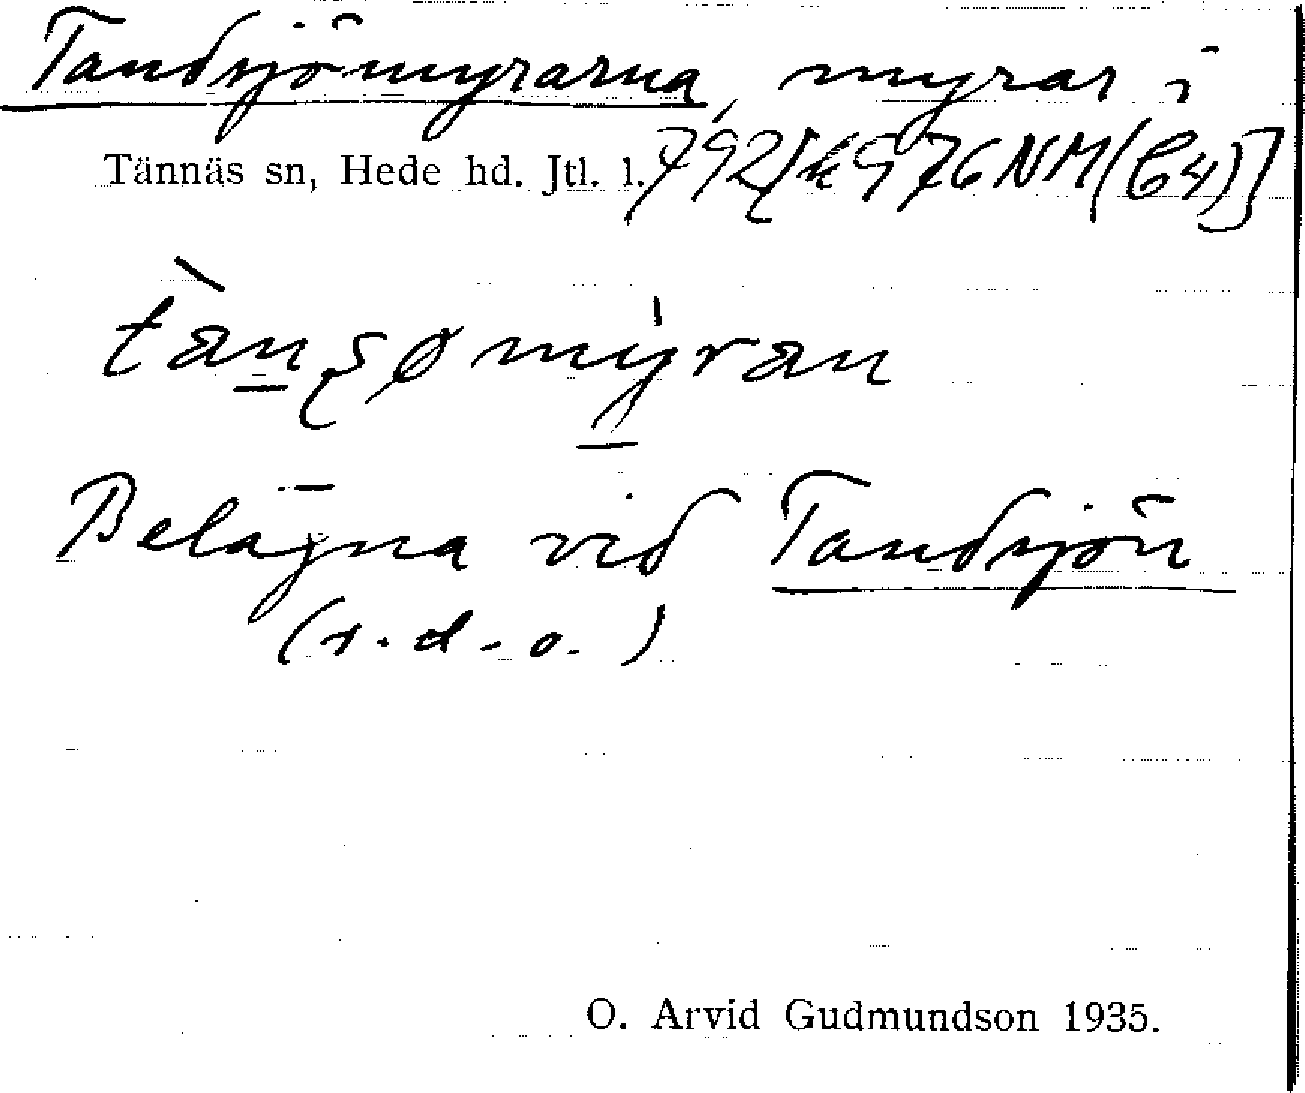 Tandsjömyrarna, myrar i
Tännäs sn, Hede hd. Jtl. l. 792[k976NM(C4)]
tànʂømy̍ran
Belägna vid Tandsjön
(s.d.o.)
O. Arvid Gudmundson 1935.